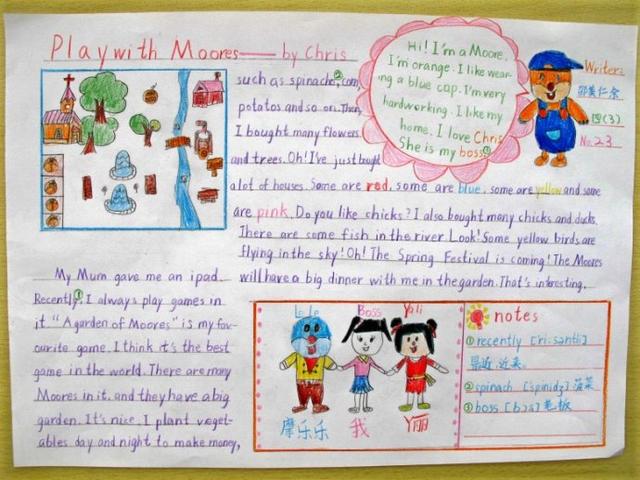 Play with Moores — by Chris
My Mum gave me an ipad.
Recently,① I always play games in
it "A garden of Moores" is my fav-
ourite game. I think it's the best
game in the world. There are many
Moores in it. and they have a big
garden. It's nice. I plant veget-
ables day and night to make money,
such as spinach②, corn,
potatos and so on. Then,
I bought many flowers
and trees. Oh! I've just bought
a lot of houses. Some are red, some are blue, some are yellow and some
are pink. Do you like chicks? I also bought many chicks and ducks.
There are some fish in the river. Look! Some yellow birds are
flying in the sky! Oh! The Spring Festival is coming! The Moores
will have a big dinner with me in the garden. That's interesting.
Hi! I'm a Moore.
I'm orange. I like wear-
ing a blue cap. I'm very
hardworking. I like my
home. I love Chris
She is my boss③
Writer:
四(3)
No.23
Le Le Boss Yoli
摩乐乐 我 丫丽
notes
① recently [ri:səntli]
最近,近来。
② spinach [spinidʒ] 菠菜
③ boss [bɔs] 老板